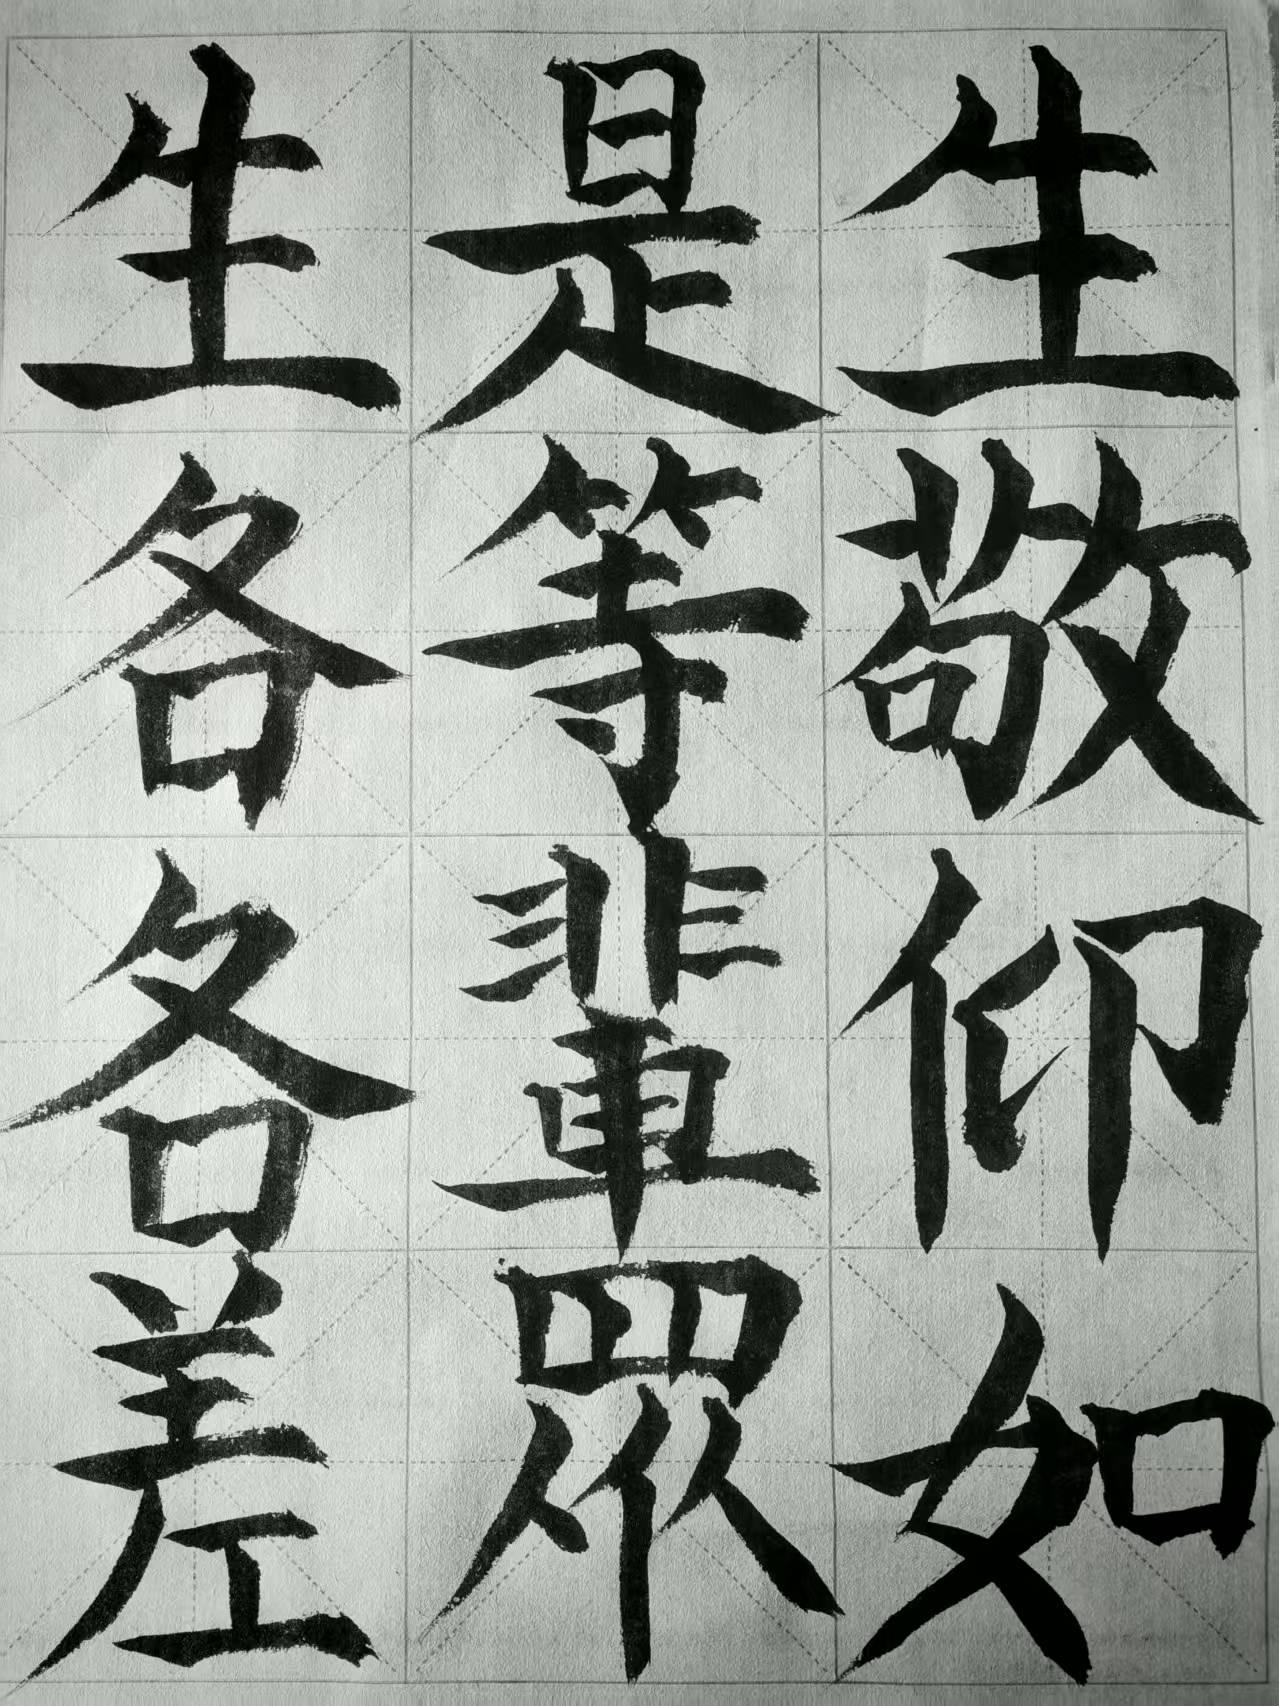 生敬仰如
是等輩眾
生各各差